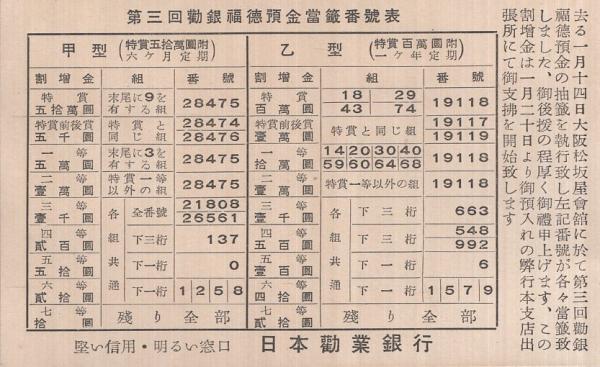 第三回勸銀福德預金當籤番號表
去る一月十四日大阪松坂屋會舘に於て第三回勸銀
福德預金の抽籤を執行致し左記番號が各々當籤致
しました、御後援の程厚く御禮申上げます、この
割增金は一月二十日より御預入れの弊行本支店出
張所にて御支拂を開始致します
甲型(特賞五拾萬圓附 六ヶ月定期)
割增金 組 番號
特賞 五拾萬圓 末尾に9を有する組 28475
特賞前後賞 五千圓 特賞と同じ組 28474 28476
一等 五萬圓 末尾に3を有する組 28475
二等 壹萬圓 特賞一等以外の組 28475
三等 壹千圓 各組共通 全番號 21808 26561
四等 貳百圓 下三桁 137
五等 五拾圓 下一桁 0
六等 貳拾圓 下一桁 1 2 5 8
七等 拾圓 殘り全部
乙型(特賞百萬圓附 一ヶ年定期)
割增金 組 番號
特賞 百萬圓 18 29 43 74 19118
特賞前後賞 壹萬圓 特賞と同じ組 19117 19119
一等 拾萬圓 14 20 30 40 59 60 64 68 19118
二等 壹萬圓 特賞一等以外の組 19118
三等 壹千圓 各組共通 下三桁 663
四等 五百圓 下三桁 548 992
五等 壹百圓 下一桁 6
六等 四拾圓 下一桁 1 5 7 9
七等 貳拾圓 殘り全部
堅い信用・明るい窓口 日本勸業銀行